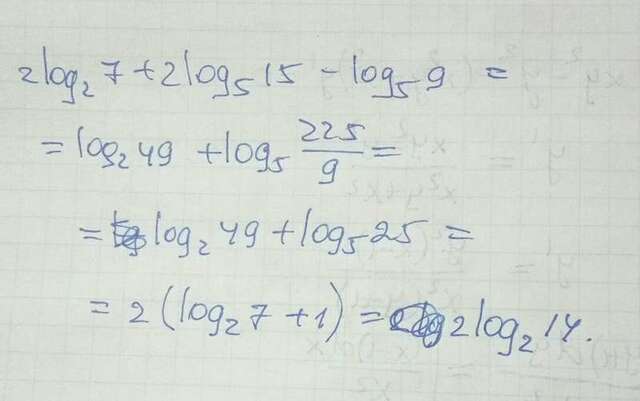 2log₂7 + 2log₅15 - log₅9 =
= log₂49 + log₅ 225/9 =
= log₂49 + log₅25 =
= 2(log₂7 + 1) = 2log₂14.